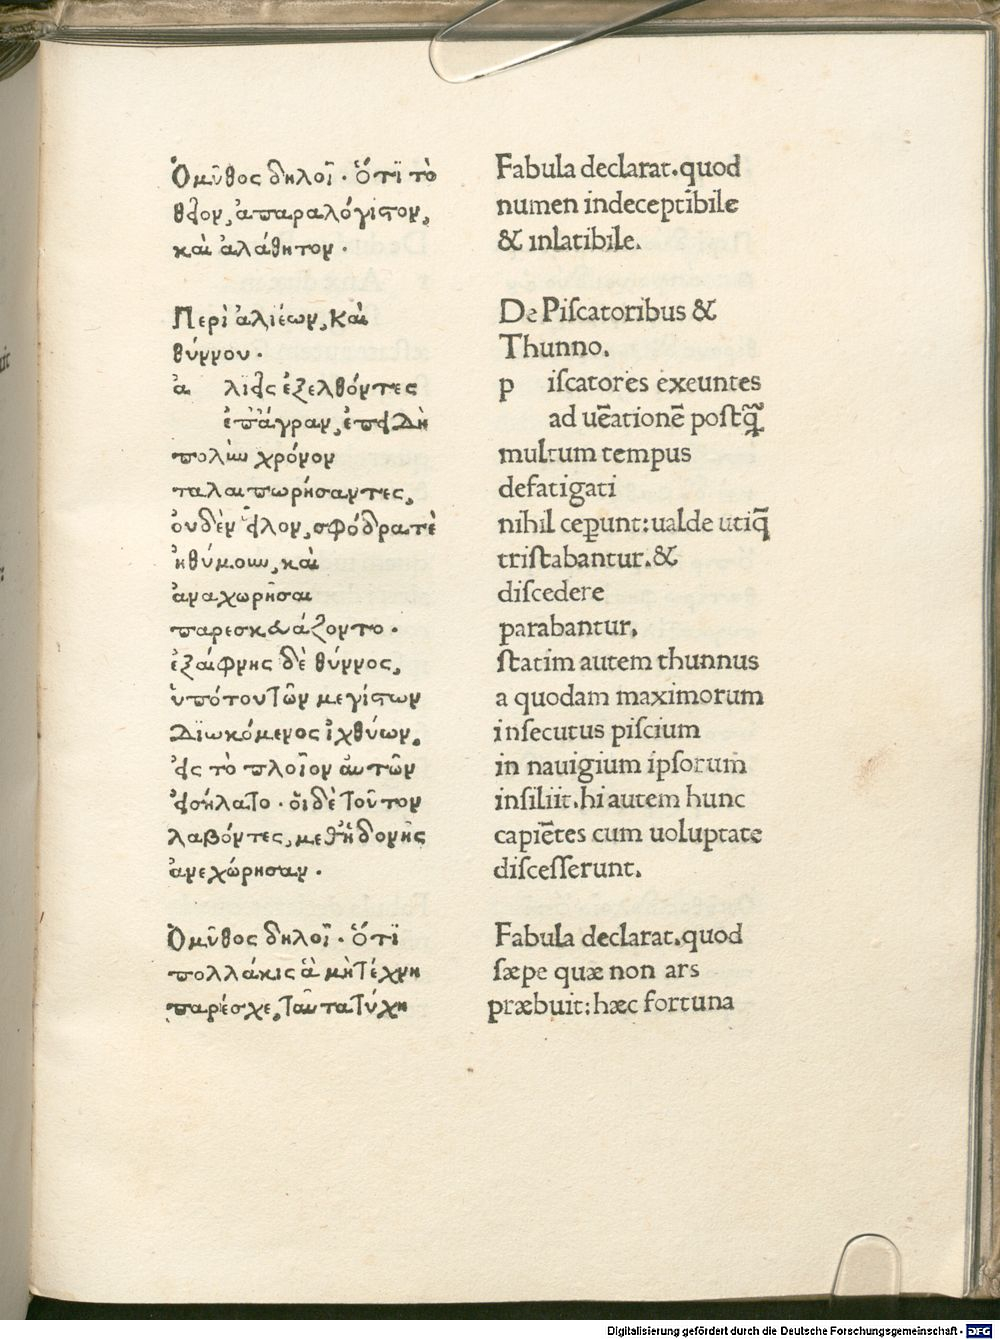 Ὁ μῦθος δηλοῖ. ὅτι τὸ
θεῖον, ἀπαραλόγιστον,
καὶ ἀλάθητον.
Περὶ ἁλιέων, καὶ
θύννου.
ἁ λιεῖς ἐξελθόντες
ἐπ' ἄγραν, ἐπειδὴ
πολὺν χρόνον
ταλαιπωρήσαντες,
οὐδὲν εἷλον, σφόδρα τὲ
ἠθύμουν, καὶ
ἀναχωρῆσαι
παρεσκευάζοντο.
ἐξαίφνης δὲ θύννος,
ὑπό του τῶν μεγίστων
διωκόμενος ἰχθύων,
εἰς τὸ πλοῖον αὐτῶν
εἰσήλατο. οἱ δὲ τοῦτον
λαβόντες, μεθ' ἡδονῆς
ἀνεχώρησαν.
Ὁ μῦθος δηλοῖ. ὅτι
πολλάκις ἃ μὴ τέχνη
παρέσχε, ταῦτα τύχη
Fabula declarat. quod
numen indeceptibile
& inlatibile.
De Piſcatoribus &
Thunno.
p iſcatores exeuntes
ad uēationē poſtq̄̃
multum tempus
defatigati
nihil ceꝑunt: ualde utiq̄
triſtabantur. &
diſcedere
parabantur,
ſtatim autem thunnus
a quodam maximorum
inſecutus piſcium
in nauigium ipſorum
inſiliit. hi autem hunc
capiētes cum uoluptate
diſceſſerunt.
Fabula declarat. quod
ſæpe quæ non ars
præbuit: hæc fortuna
Digitalisierung gefördert durch die Deutsche Forschungsgemeinschaft - DFG